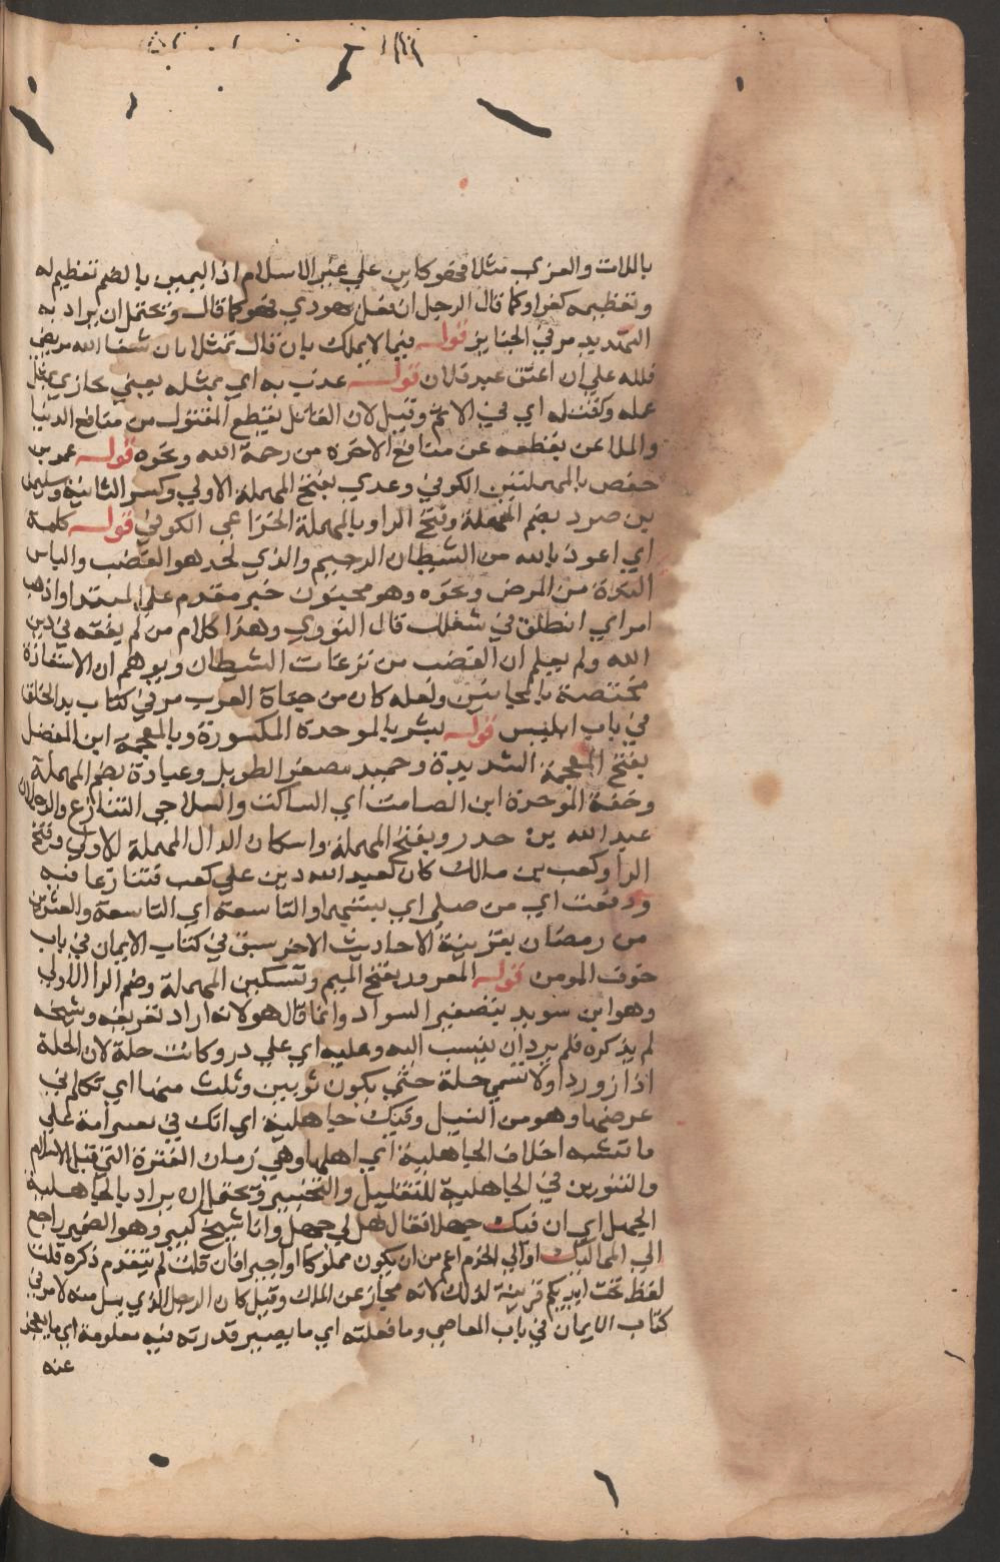 باللات والعزى مثلا فهو كاين علي غير الاسلام اذ اليمين بالصنم تعظيم له
وتعظيمه كفر او كما قال الرجل ان فعل يهودي فهو كما قال ويحتمل ان يراد به
التهديد مر في الجنايز قوله فيما لا يملك بان قال مثلا ان شفا الله مريضي
فلله علي ان اعتق عبد فلان قوله عذب به اي بمثله يعني يجازي بمثل
عمله وكقتله اي في الاثم وقيل لان القاتل يقطع المقتول من منافع الدنيا
والملاعن يقطعه عن منافع الاخرة من رحمة الله ونحوه قوله عمر بن
حفص بالمهملتين الكوفي وعدي بفتح المهملة الاولي وكسر الثانية وسليمان
بن صرد بضم المهملة وفتح الرا وبالمهملة الخزاعي الكوفي قوله كلمة
اي اعوذ بالله من الشيطان الرجيم والذي نجد هو الغضب والباس
الشدة من المرض ونحوه وهو مجنون خبر مقدم علي المبتدا واذهب
امر اي انطلق في شغلك قال النووي وهذا كلام من لم يفقه في دين
الله ولم يعلم ان الغضب من نزغات الشيطان ويوهم ان الاستعاذة
مختصة بالمجانين ولعله كان من جفاة العرب مر في كتاب بدء الخلق
في باب ابليس قوله بشر بالموحدة المكسورة وبالمعجمة ابن المفضل
بفتح المعجمة الشديدة وحميد مصغر الطويل وعبادة بضم المهملة
وخفة الموحدة ابن الصامت اي الساكت والتلاحي التنازع والرجلان
عبد الله بن حدرد بفتح المهملة واسكان الدال المهملة الاولي وفتح
الرا وكعب بن مالك كان لعبد الله دين علي كعب فتنازعا فيه
ورفعت اي من صلي اي بينهم او التاسعة اي التاسعة والعشرين
من رمضان بقرينة الاحاديث الاخر سبق في كتاب الايمان في باب
خوف المومن قوله المعرور بفتح الميم وتسكين المهملة وضم الرا الاولي
وهو ابن سويد بتصغير السواد وانما قال هو لانه اراد تعريفه وشيخه
لم يذكره فلم يرد ان ينسب اليه وعليه اي علي در وكانت حلة لان الحلة
اذا زورداولا تسمي حلة حتى يكون ثوبين وثلث منها اي تكلم في
عرضها وهو من النيل وفيك جاهلية اي انك في
ما تشبه اخلاق الجاهلية اي اهلها وهي زمان الفترة التي قبل الاسلام
والتنوين في الجاهلية للتقليل والتحقير ويحتمل ان يراد بالجاهلية
الجهل اي ان فيك جهلا فقال هل لي جهل وانا شيخ كبير وهو الضمير راجع
الي المماليك او الي الخدم اعم من ان يكون مملوكا او اجيرا فان قلت لم يتقدم ذكره قلت
لفظ تحت ايديكم قرينة لذلك لانه مجاز عن الملك وقيل كان الرجل الذي منه لامر في
كتاب الايمان في باب المعاصي وما فعلته اي ما يصير قدرته فيه معلومة اي ما يعجز
عنه